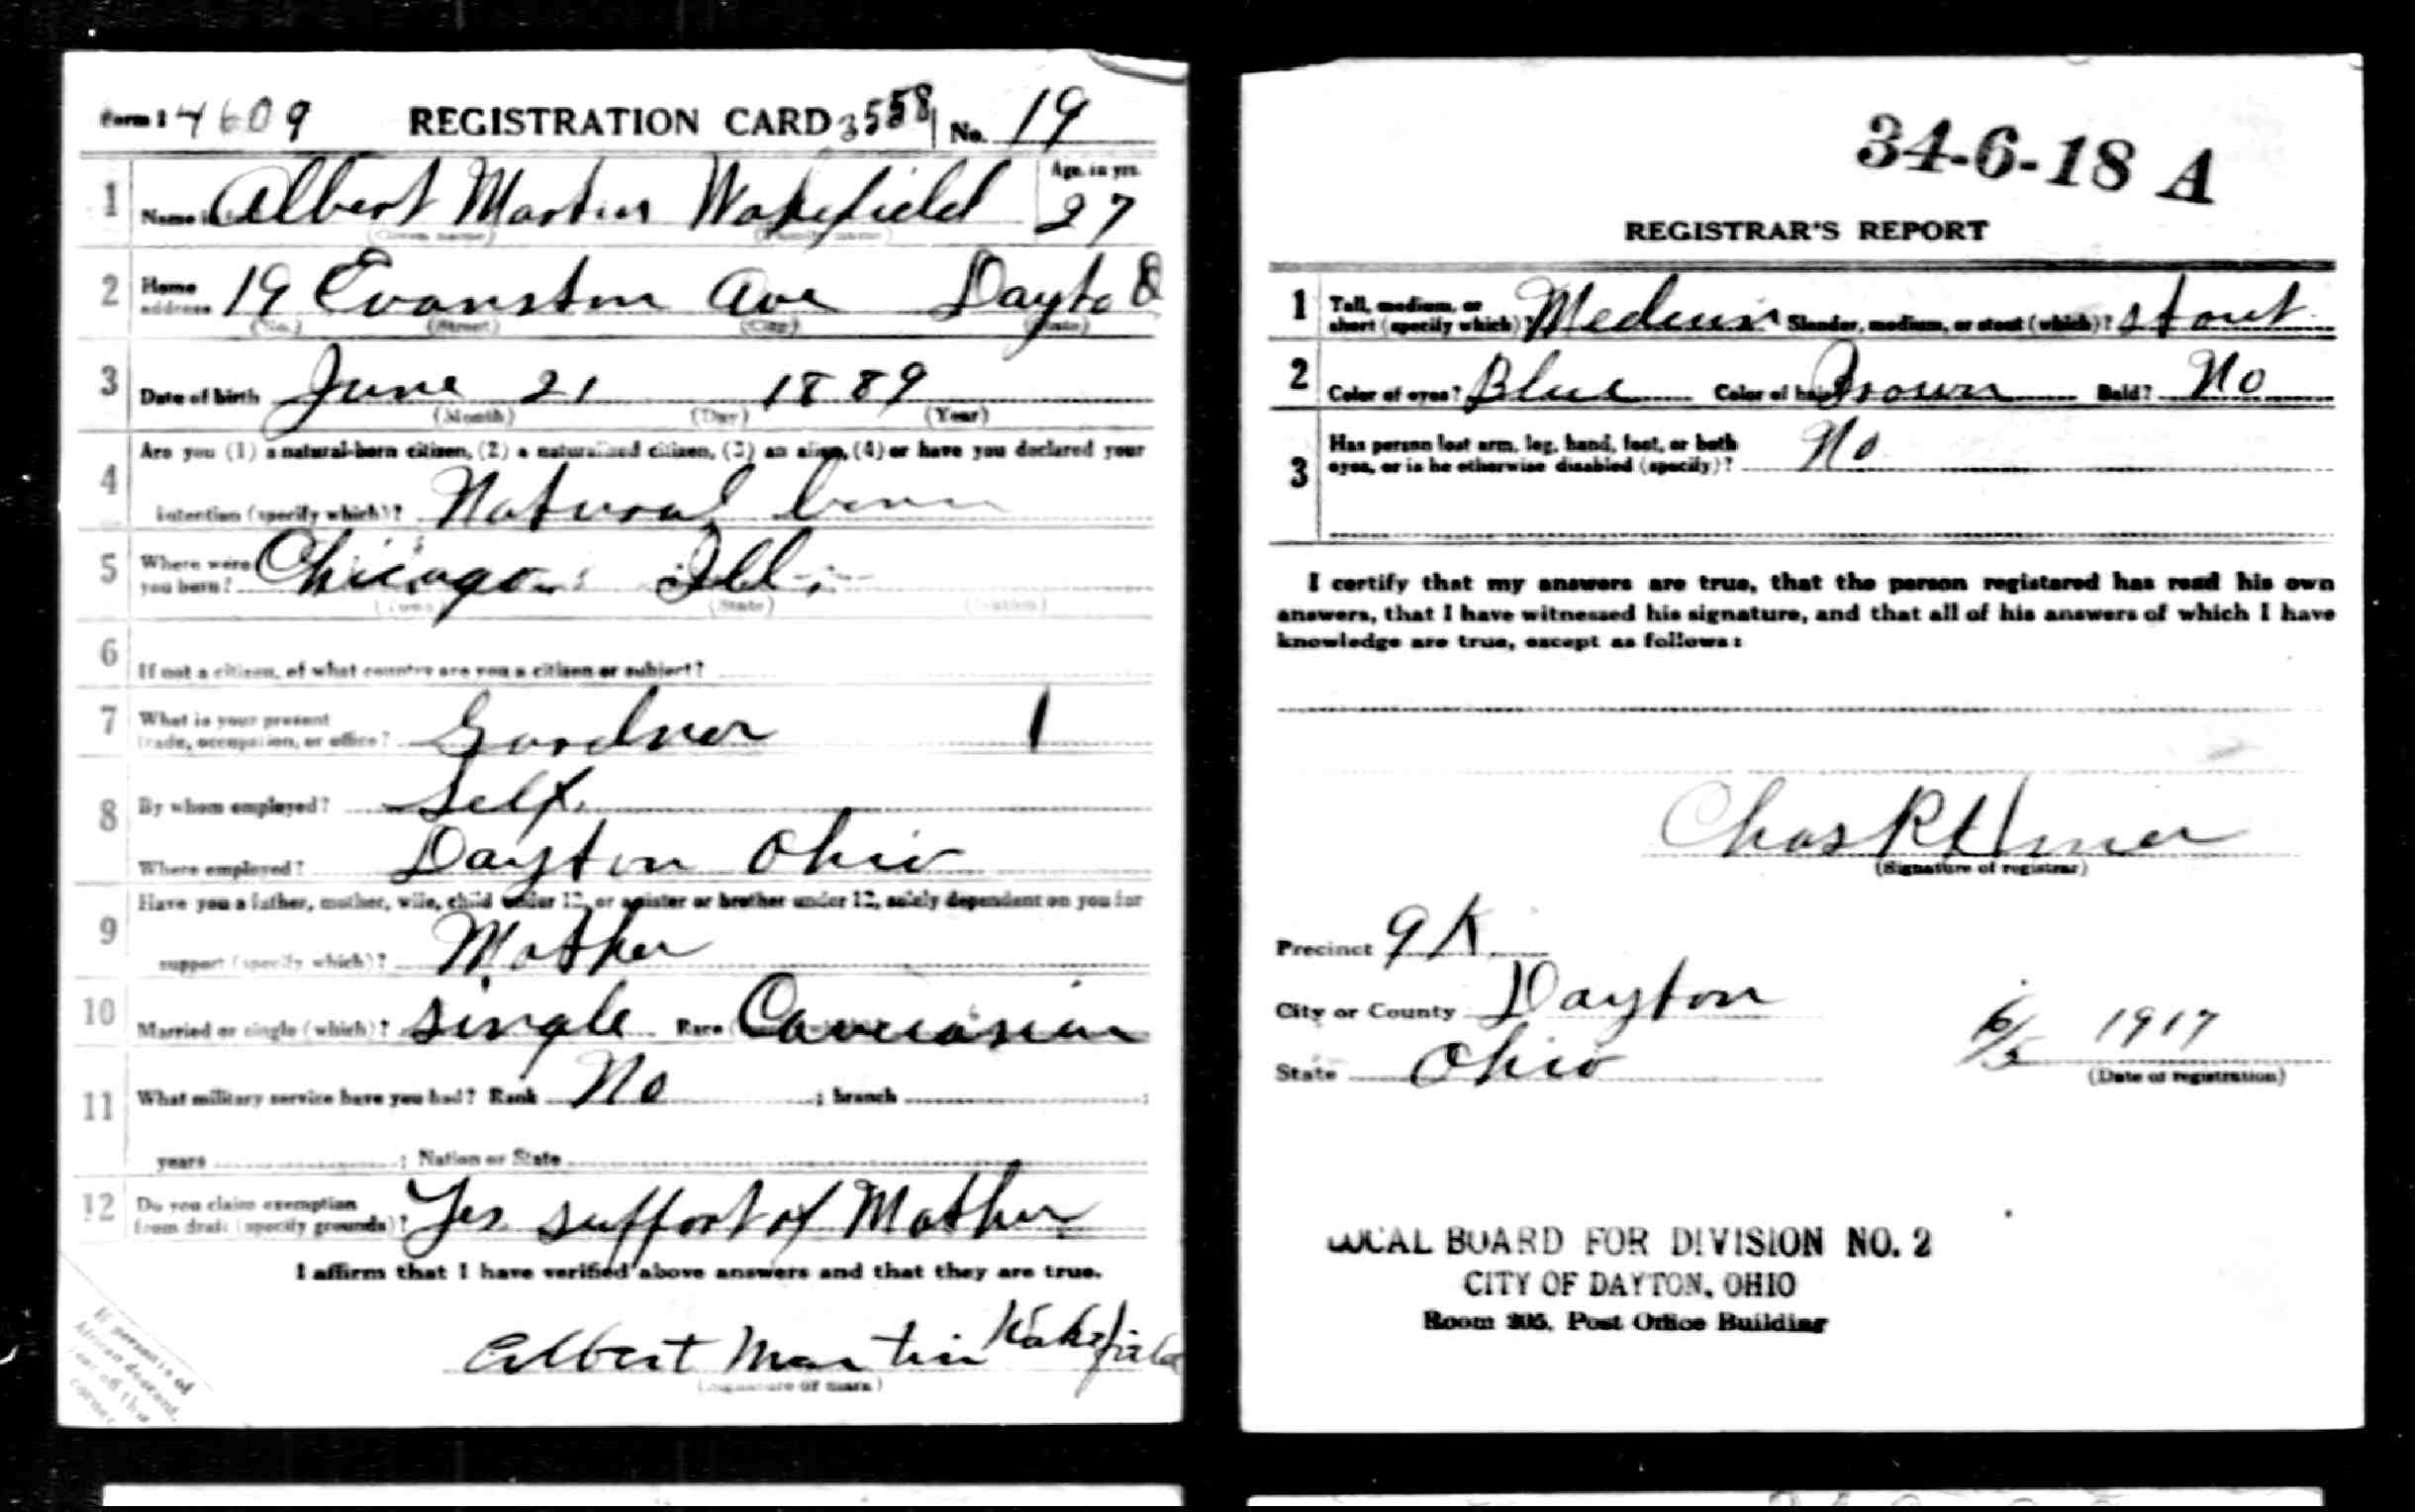 Form 1 4609 REGISTRATION CARD 3558 No. 19
1 Name in Albert Martin Wakefield Age, in yrs. 27
(Given name) (Family name)
2 Home address 19 Evanston Ave Dayto O
(No.) (Street) (City) (State)
3 Date of birth June 21 1889
(Month) (Day) (Year)
4 Are you (1) a natural-born citizen, (2) a naturalized citizen, (3) an alien, (4) or have you declared your
intention (specify which)? Natural born
5 Where were you born? Chicago Ill.
(Town) (State) (Nation)
6 If not a citizen, of what country are you a citizen or subject?
7 What is your present trade, occupation, or office? Gardner 1
8 By whom employed? Self
Where employed? Dayton Ohio
9 Have you a father, mother, wife, child under 12, or a sister or brother under 12, solely dependent on you for
support (specify which)? Mother
10 Married or single (which)? single Race Caucasian
11 What military service have you had? Rank No ; branch ;
years ; Nation or State
12 Do you claim exemption from draft (specify grounds)? Yes support of Mother
I affirm that I have verified above answers and that they are true.
Albert Martin Wakefield
(Signature or mark)
If person is of
African descent,
tear off this
corner
34-6-18 A
REGISTRAR'S REPORT
1 Tall, medium, or short (specify which)? Medium Slender, medium, or stout (which)? stout
2 Color of eyes? Blue Color of hair? Brown Bald? No
3 Has person lost arm, leg, hand, foot, or both eyes, or is he otherwise disabled (specify)? No
I certify that my answers are true, that the person registered has read his own
answers, that I have witnessed his signature, and that all of his answers of which I have
knowledge are true, except as follows:
Chas
(Signature of registrar)
Precinct 9 K
City or County Dayton
State Ohio 6/5 1917
(Date of registration)
LOCAL BOARD FOR DIVISION NO. 2
CITY OF DAYTON, OHIO
Room 305, Post Office Building